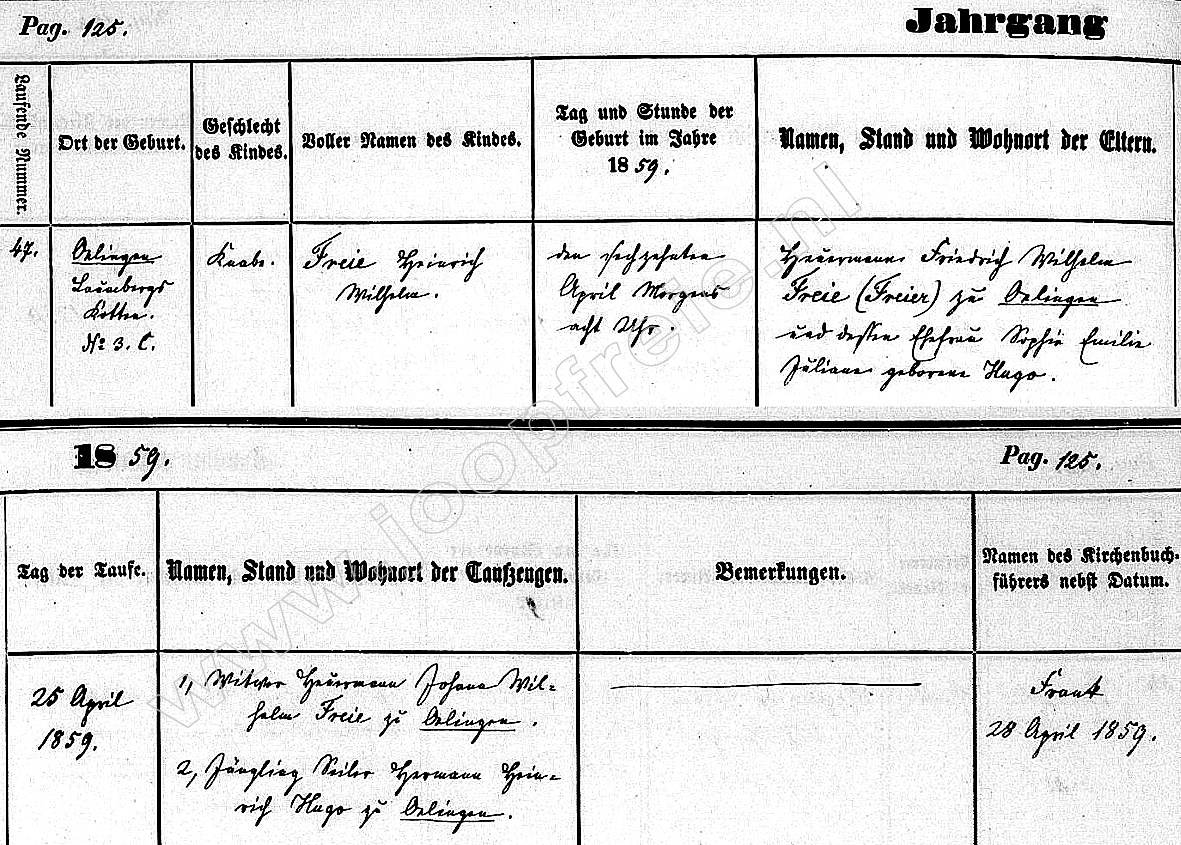 Pag. 125.
Jahrgang
Laufende Nummer.
Ort der Geburt.
Geschlecht
des Kindes.
Voller Namen des Kindes.
Tag und Stunde der
Geburt im Jahre
1859.
Namen, Stand und Wohnort der Eltern.
47.
Oelingen
Kotten.
No 3. C.
Knabe.
Freie Heinrich
Wilhelm.
den sechzehnten
April Morgens
acht Uhr.
Heuermann Friedrich Wilhelm
Freie (Freier) zu Oelingen
und dessen Ehefrau Sophie Emilie
Juliane geborene Hugo.
1859.
Pag. 125.
Tag der Taufe.
Namen, Stand und Wohnort der Taufzeugen.
Bemerkungen.
Namen des Kirchenbuch-
führers nebst Datum.
25 April
1859.
1, Witwer Heuermann Johann Wil=
helm Freie zu Oelingen.
2, Jüngling Seiler Hermann Hein=
rich Hugo zu Oelingen.
Frank
28 April 1859.
www.joopfreie.nl